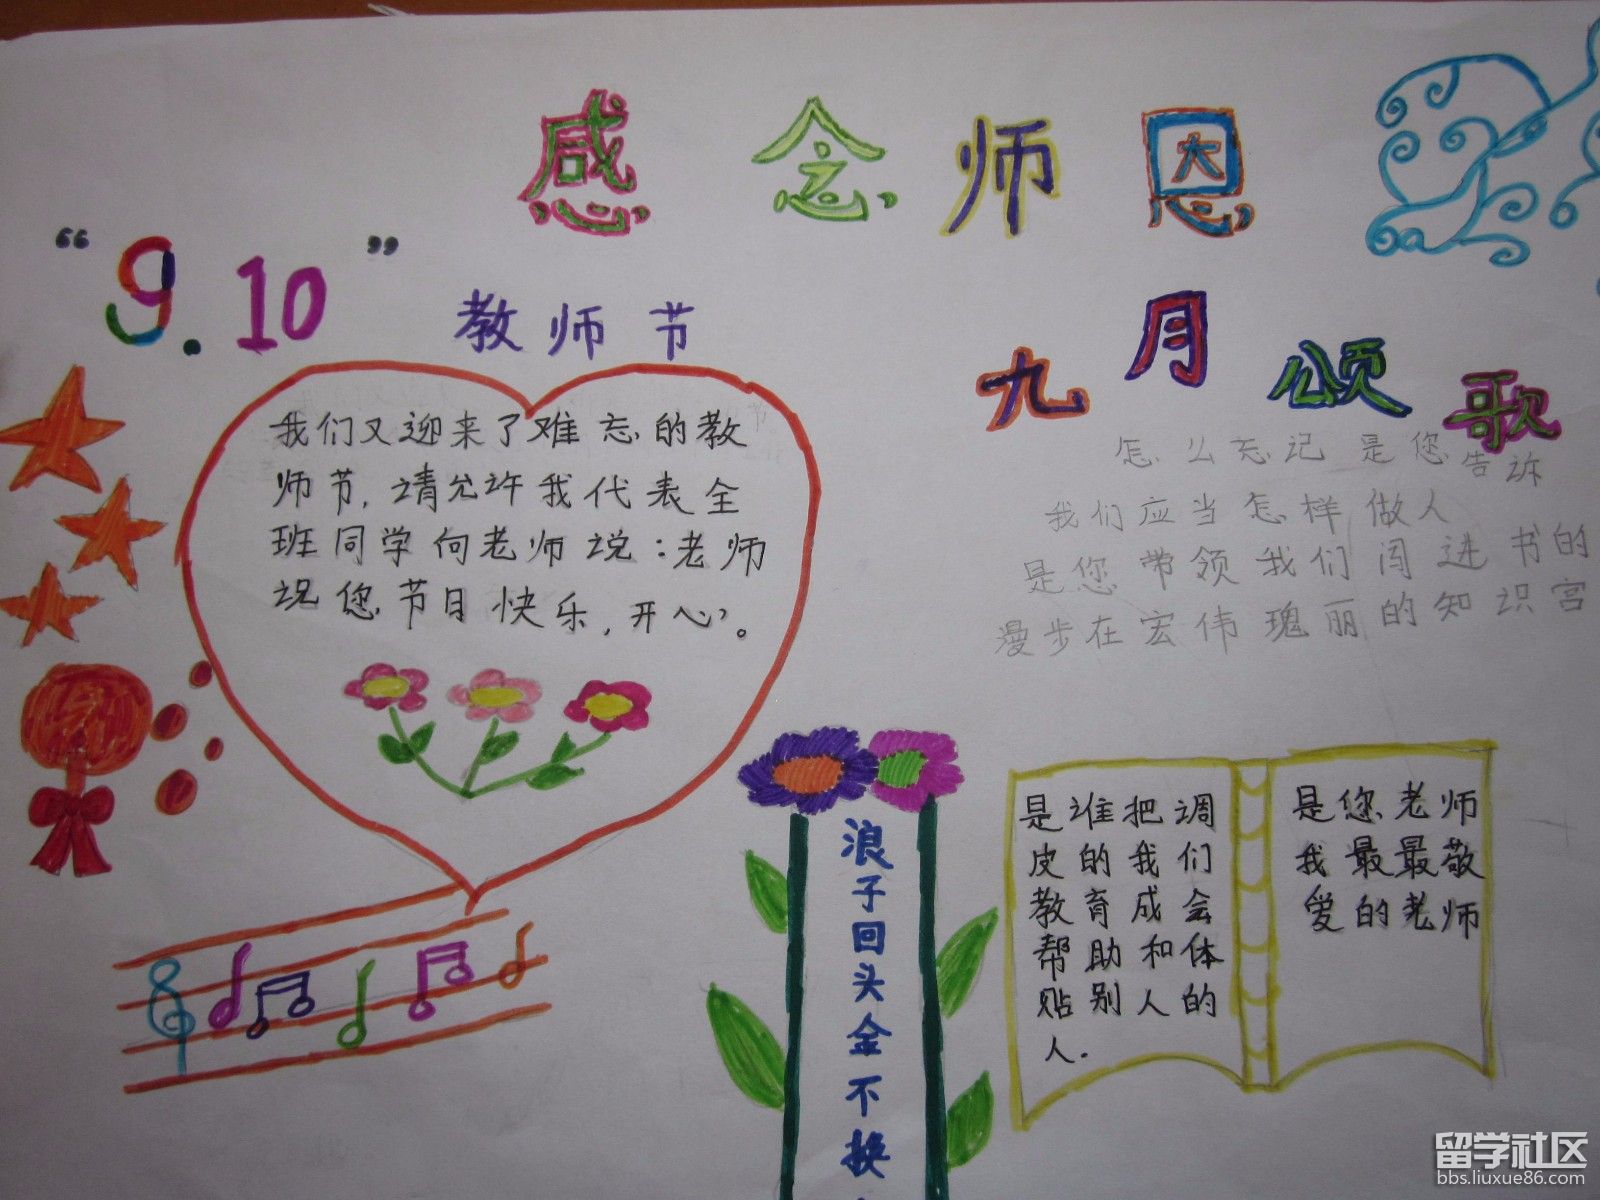 感念师恩
“9.10”
教师节
九月颂歌
我们又迎来了难忘的教
师节,请允许我代表全
班同学向老师说:老师
祝您节日快乐,开心。
怎么忘记 是您告诉
我们应当怎样做人
是您带领我们闯进书的
漫步在宏伟瑰丽的知识宫
浪子回头金不换
是谁把调
皮的我们
教育成会
帮助和体
贴别人的
人.
是您老师
我最最敬
爱的老师
留学社区
bbs.liuxue86.com